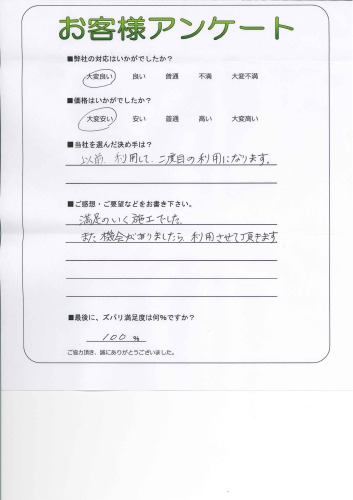 お客様アンケート
■弊社の対応はいかがでしたか？
大変良い 良い 普通 不満 大変不満
■価格はいかがでしたか？
大変安い 安い 普通 高い 大変高い
■当社を選んだ決め手は？
以前、利用して、二度目の利用になります。
■ご感想・ご要望などをお書き下さい。
満足のいく施工でした。
また機会がありましたら、利用させて頂きます
■最後に、ズバリ満足度は何%ですか？
100 %
ご協力頂き、誠にありがとうございました。